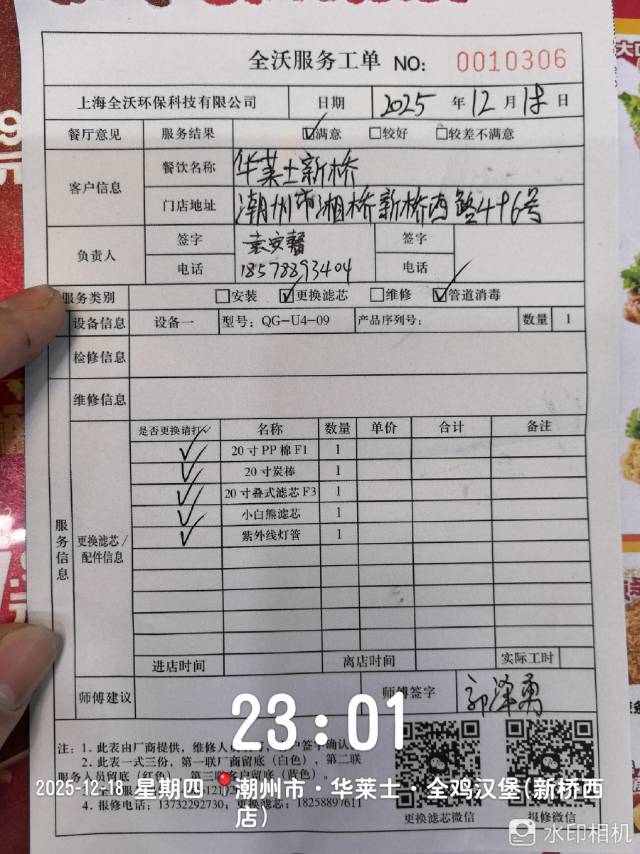 全沃服务工单 NO: 0010306
上海全沃环保科技有限公司 日期 2025 年 12 月 18 日
餐厅意见 服务结果 ☑满意 □较好 □较差不满意
客户信息 餐饮名称 华莱士新桥
门店地址 潮州市湘桥新桥西路496号
负责人 签字 签字
电话 18578893404 电话
服务类别 □安装 ☑更换滤芯 □维修 ☑管道消毒
设备信息 设备一 型号: QG-U4-09 产品序列号: 数量 1
检修信息
维修信息
服务信息
更换滤芯/配件信息
是否更换请打✓ 名称 数量 单价 合计 备注
✓ 20寸PP棉F1 1
✓ 20寸炭棒 1
✓ 20寸叠式滤芯F3 1
✓ 小白熊滤芯 1
✓ 紫外线灯管 1
进店时间 离店时间 实际工时
师傅建议 师傅签字 郭泽勇
23:01
注: 1. 此表由厂商提供, 维修人 签字确认
2. 此表一式三份, 第一联厂商留底(白色), 第二联
服务人员留底(红色), 第三联客户留底(蓝色)。
2025-12-18 星期四 潮州市·华莱士·全鸡汉堡(新桥西店)
4. 报修电话: 13732292730, 更换滤芯: 18258897611
更换滤芯微信 报修微信
水印相机